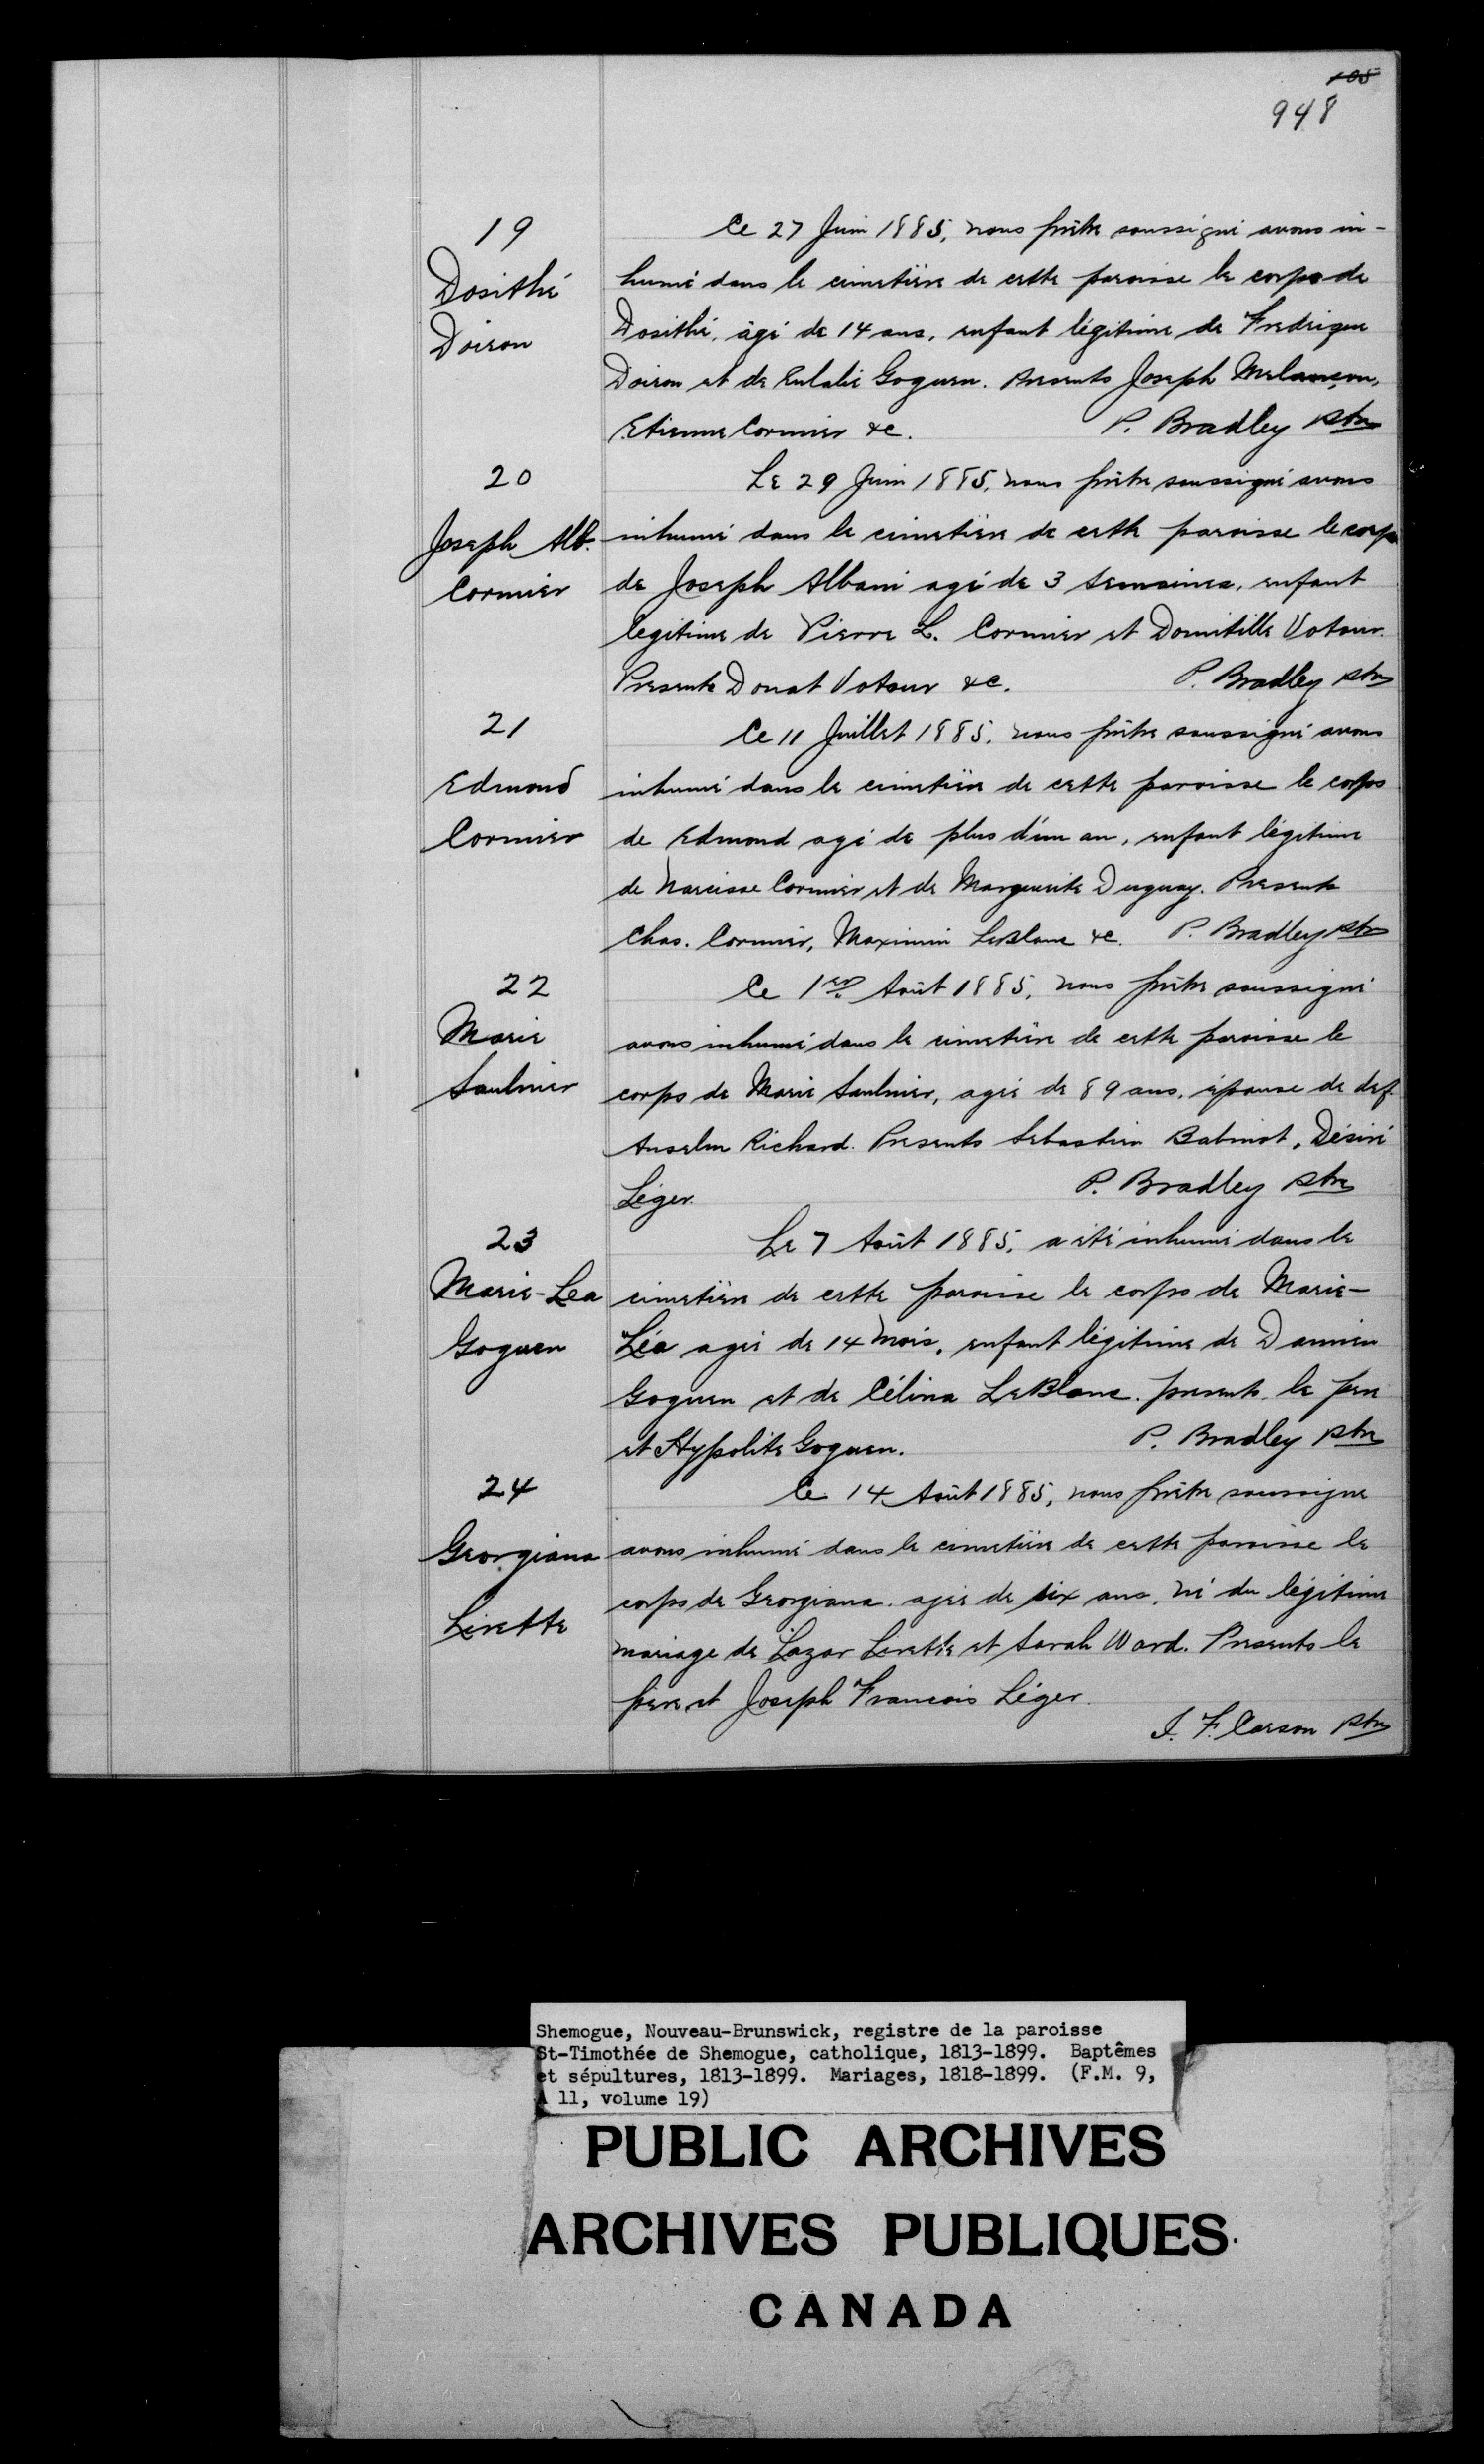 105
948
19
Dosithé
Doiron
Ce 27 Juin 1885, nous prêtre soussigné avons in-
humé dans le cimetière de cette paroisse le corps de
Dosithé, âgé de 14 ans, enfant légitime de Fredrique
Doiron et de Eulalie Goguen. Presents Joseph Melançon,
Etienne Cormier &c. P. Bradley Ptre
20
Joseph Alb.
Cormier
Le 29 Juin 1885, nous prêtre soussigné avons
inhumé dans le cimetière de cette paroisse le corps
de Joseph Albani agé de 3 semaines, enfant
legitime de Pierre L. Cormier et Domitille Votour.
Presents Donat Votour &c. P. Bradley Ptre
21
Edmond
Cormier
Ce 11 Juillet 1885, nous prêtre soussigné avons
inhumé dans le cimetière de cette paroisse le corps
de Edmond agé de plus d'un an, enfant légitime
de Narcisse Cormier et de Marguerite Duguay. Presents
Chas. Cormier, Maximin LeBlanc &c. P. Bradley Ptre
22
Marie
Saulnier
Ce 1er Août 1885, nous prêtre soussigné
avons inhumé dans le cimetière de cette paroisse le
corps de Marie Saulnier, agée de 89 ans, épouse de def.
Anselm Richard. Presents Sebastien Babinot, Désiré
Léger. P. Bradley Ptre
23
Marie-Lea
Goguen
Le 7 Août 1885, a été inhumé dans le
cimetière de cette paroisse le corps de Marie-
Léa agée de 14 mois, enfant légitime de Damien
Goguen et de Célina LeBlanc. presents le père
et Hypolite Goguen. P. Bradley Ptre
24
Georgiana
Lirette
Ce 14 Août 1885, nous prêtre soussigné
avons inhumé dans le cimetière de cette paroisse le
corps de Georgiana. agée de six ans, né du légitime
mariage de Lazar Lirette et Sarah Ward. Presents le
père et Joseph Francois Léger.
J. F. Carson Ptre
Shemogue, Nouveau-Brunswick, registre de la paroisse
St-Timothée de Shemogue, catholique, 1813-1899. Baptêmes
et sépultures, 1813-1899. Mariages, 1818-1899. (F.M. 9,
A 11, volume 19)
PUBLIC ARCHIVES
ARCHIVES PUBLIQUES
CANADA